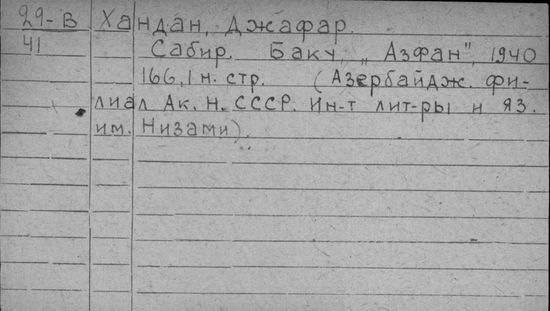 29-В Хандан, Джафар.
41 Сабир. Баку, „Азфан", 1940
166, 1 н. стр. (Азербайдж. фи-
лиал Ак. Н. СССР. Ин-т лит-ры и яз.
им. Низами).